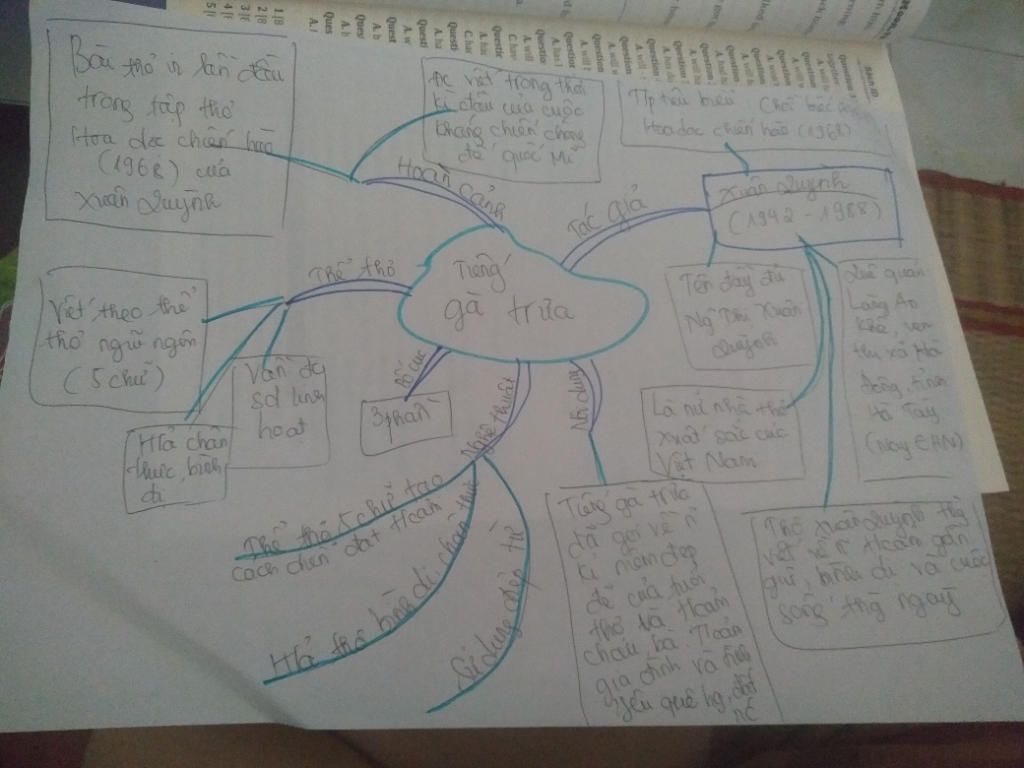 Tiếng
gà trưa
Hoàn cảnh
Bài thơ in lần đầu
trong tập thơ
Hoa dọc chiến hào
(1968) của
Xuân Quỳnh
đc viết trong thời
kì đầu của cuộc
kháng chiến chống
đế quốc Mĩ
Tác giả
Xuân Quỳnh
(1942 - 1988)
Tp tiêu biểu: Chồi biếc
Hoa dọc chiến hào (1968)
Tên đầy đủ
Nguyễn Thị Xuân
Quỳnh
Quê quán
Làng An
Khê, ven
thị xã Hà
Đông, tỉnh
Hà Tây
(Nay
Là nữ nhà thơ
xuất sắc của
Việt Nam
Thơ Xuân Quỳnh thg
viết về n tcảm gần
gũi, bình dị và cuộc
sống thg ngày
Thể thơ
Viết theo thể
thơ ngũ ngôn
(5 chữ)
Vần đa
số linh
hoạt
H/ả chân
thực, bình
dị
Bố cục
3 phần
Nghệ thuật
Thể thơ 5 chữ tạo
cách diễn đạt tcảm
H/ả thơ bình dị, chân thực
Sử dụng điệp từ
Nội dung
Tiếng gà trưa
đã gọi về n
kỉ niệm đẹp
đẽ của tuổi
thơ và tcảm
cháu bà. Tcảm
gia đình và
yêu quê hg, đất
nc
Question